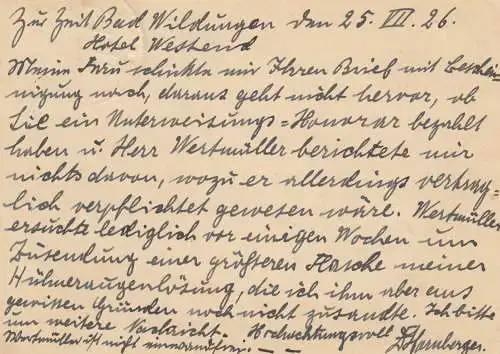 Zur Zeit Bad Wildungen den 25. VII. 26.
Hotel Westend
Meine Frau schickte mir Ihren Brief mit Beschei-
nigung nach, daraus geht nicht hervor, ob
Sie ein Unterweisungs-Honorar bezahlt
haben u. Herr Wertmüller berichtete mir
nichts davon, wozu er allerdings vertrag-
lich verpflichtet gewesen wäre. Wertmüller
ersuchte lediglich vor einigen Wochen um
Zusendung einer größeren Flasche meiner
Hühneraugenlösung, die ich ihm aber aus
gewissen Gründen noch nicht zusandte. Ich bitte
um weitere Nachricht. Hochachtungsvoll
Wertmüller ist nicht einwandfrei. —